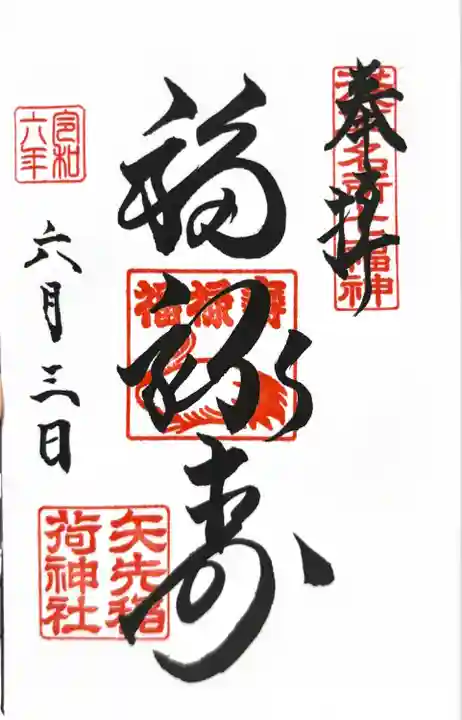 奉拝
浅草名所七福神
福禄寿
福禄壽
令和
六年
六月三日
矢先稲
荷神社